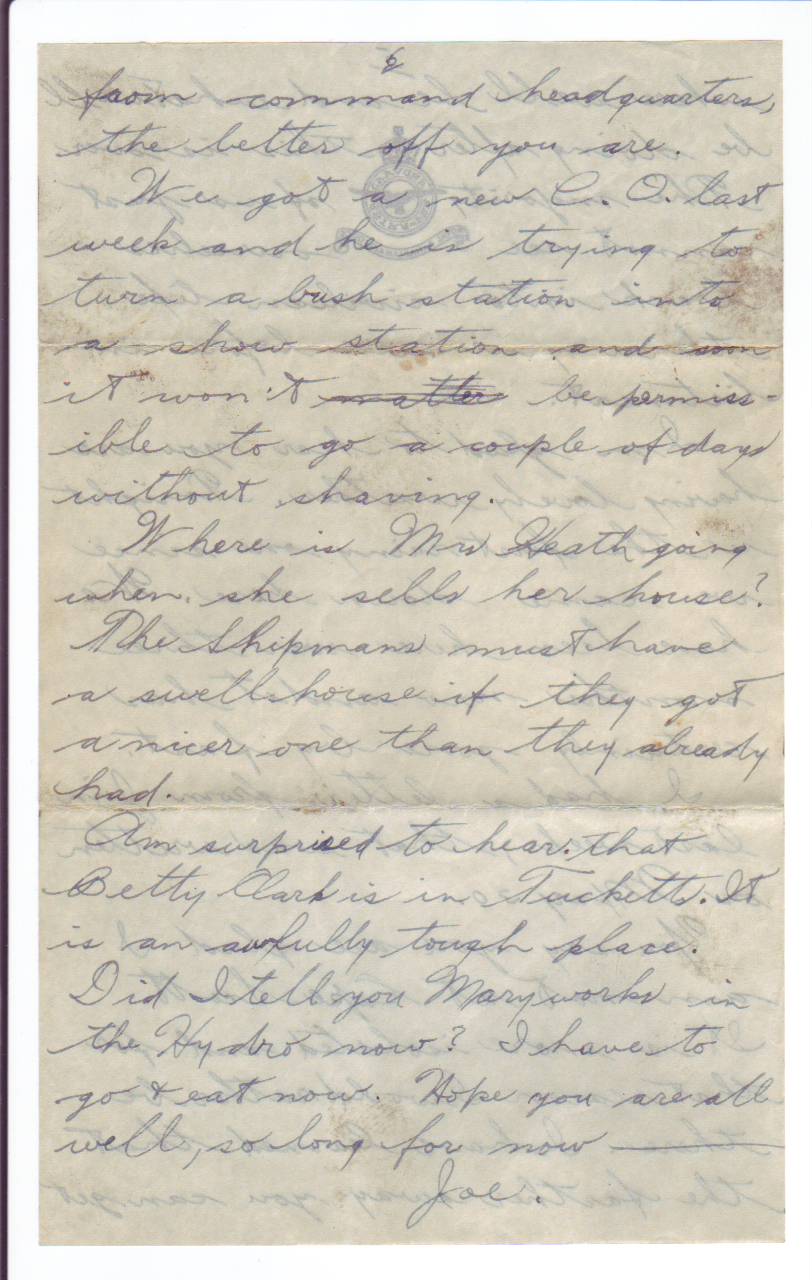 6
from command headquarters,
the better off you are.
We got a new C. O. last
week and he is trying to
turn a bush station into
a show station and soon
it won't matter be permiss-
ible to go a couple of days
without shaving.
Where is Mrs Heath going
when she sells her house?
The Shipmans must have
a swell house if they got
a nicer one than they already
had.
Am surprised to hear that
Betty Clark is in Tucketts. It
is an awfully tough place.
Did I tell you Mary works in
the Hydro now? I have to
go & eat now. Hope you are all
well, so long for now —
Joe.